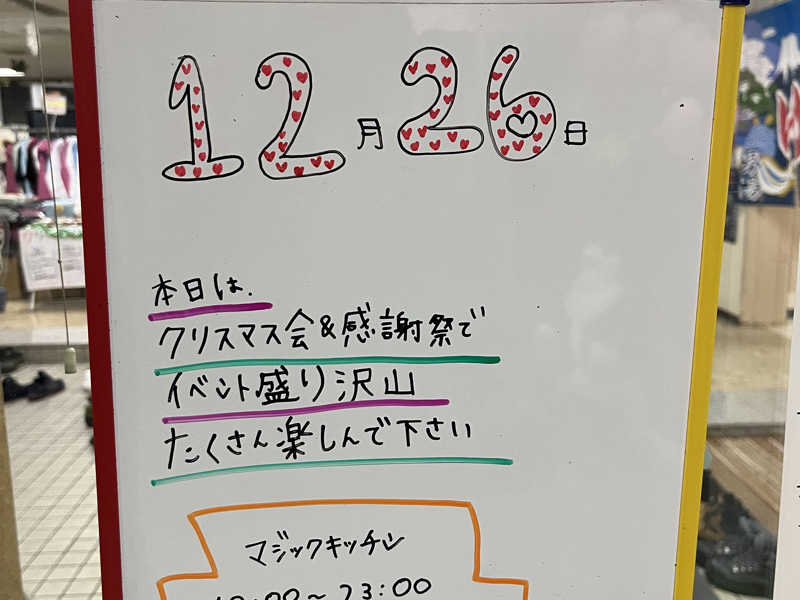 12月26日
本日は、
クリスマス会&感謝祭で
イベント盛り沢山
たくさん楽しんで下さい
マジックキッチン
～23:00